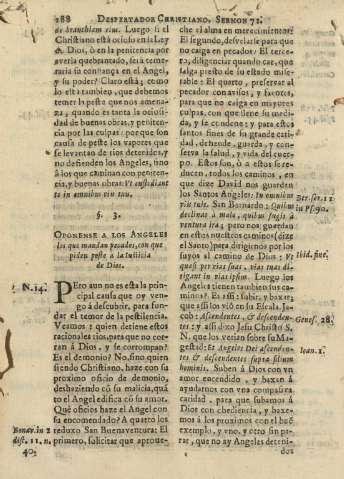 288 DESPERTADOR CHRISTIANO. SERMON 72.
de branchiam eius. Luego si el
Christiano està ocioso en la Ley
de Dios, ò en la penitencia por
averla quebrantado, serà teme-
raria su confiança en el Angel,
y su poder? Claro està; como
lo està tambien, que debemos
temer la peste que nos amena-
za, quando es tanta la ociosi-
dad de buenas obras, y peniten-
cia por las culpas: porque son
causa de peste los vapores que
se levantan de rios detenidos, y
no defienden los Angeles, sino
à los que caminan con peniten-
cia, y buenas obras: Vt custodiant
te in omnibus vijs tuis.
§. 3.
OPONENSE A LOS ANGELES
los que mandan pecados, con que
piden peste à la Iusticia
de Dios.
N. 14.
PEro aun no es esta la prin-
cipal causa que oy ven-
go à descubrir, para fun-
dar el temor de la pestilencia.
Veamos: quien detiene estos
racionales rios, para que no cor-
ran à Dios, y se corrompan?
Es el demonio? No, sino quien
siendo Christiano, haze con su
proximo oficio de demonio,
deshaziendo cõ su malicia, quã-
to el Angel edifica cõ su amor.
Què oficios haze el Angel con
su encomendado? A quatro los
reduxo San Buenaventura: El
primero, solicitar que aprove-
Bonav. in 2
dist. 11. n.
40.
che el alma en merecimientos:
El segundo, desvelarse para que
no caiga en pecado: El terce-
ro, diligenciar quando cae, que
salga presto de su estado mise-
rable: El quarto, preservar al
pecador con avisos, y favores,
para que no caiga en mayores
culpas, con que llene su medi-
da, y se condene; y para estos
santos fines de su grande cari-
dad, defiende, guarda, y con-
serva la salud, y vida del cuer-
po. Estos son, ò à estos se re-
ducen, todos los caminos, en
que dize David nos guarden
los Santos Angeles: In omnibus
vijs tuis. San Bernardo: Quibus
declinas à malo, quibus fugis à
ventura ira, pero nos guardan
en estos nuestros caminos (dize
el Santo) para dirigirnos por los
suyos al camino de Dios: Vt
quasi per vias suas, vias tuas di-
rigant in vias ipsius. Luego los
Angeles tienen tambien sus ca-
minos? Es assi: subir, y baxar;
que assi los viò en su Escala Ja-
cob: Ascendentes, & descenden-
tes: y assi dixo Jesu Christo S.
N. que los verian sobre su Ma-
gestad: Et Angelos Dei ascenden-
tes & descendentes supra filium
hominis. Suben à Dios con vn
amor encendido, y baxan à
ayudarnos con vna compassiva
caridad, para que subamos à
Dios con obediencia, y baxe-
mos à los proximos con el buẽ
exemplo, y vno, y otro sin pa-
rar, que no ay Angeles deteni-
dos
Ber. ser. 12
in Ps. 90.
Ibid. sup.
Genes. 28.
Ioan. 1.